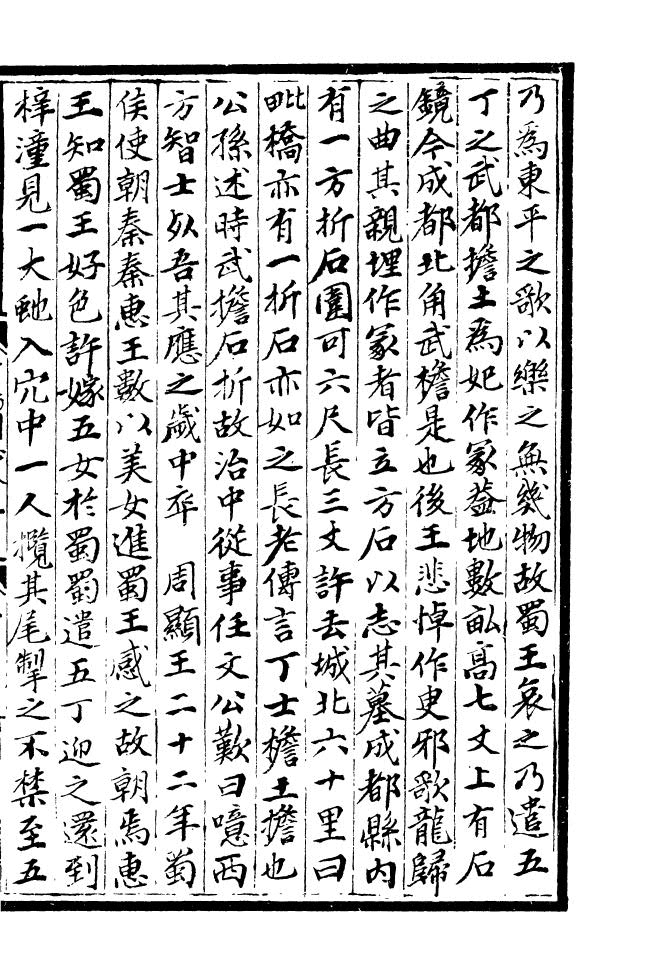 乃為東平之歌以樂之無幾物故蜀王哀之乃遣五
丁之武都擔土為妃作冢蓋地數畝高七丈上有石
鏡今成都北角武檐是也後王悲悼作臾邪歌龍歸
之曲其親埋作冢者皆立方石以志其墓成都縣內
有一方折石圍可六尺長三丈許去城北六十里曰
毗橋亦有一折石亦如之長老傳言丁士檐土擔也
公孫述時武擔石折故治中從事任文公歎曰噫西
方智士㱙吾其應之歲中卒　周顯王二十二年蜀
侯使朝秦秦惠王數以美女進蜀王感之故朝焉惠
王知蜀王好色許嫁五女於蜀蜀遣五丁迎之還到
梓潼見一大虵入穴中一人攬其尾掣之不禁至五